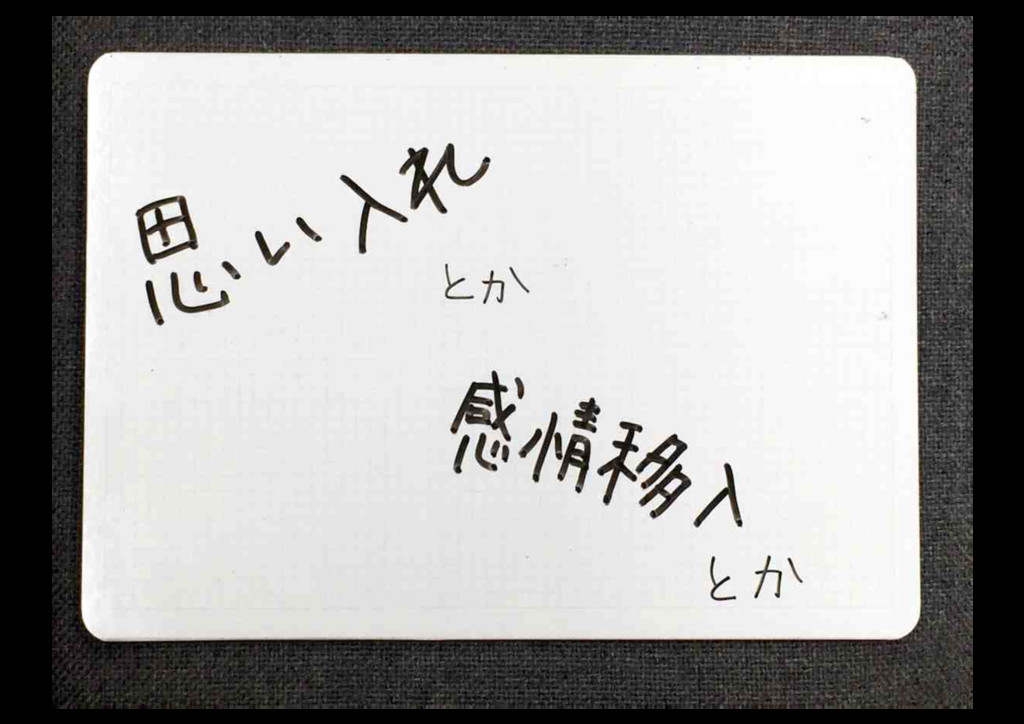 思い入れ
とか
感情移入
とか